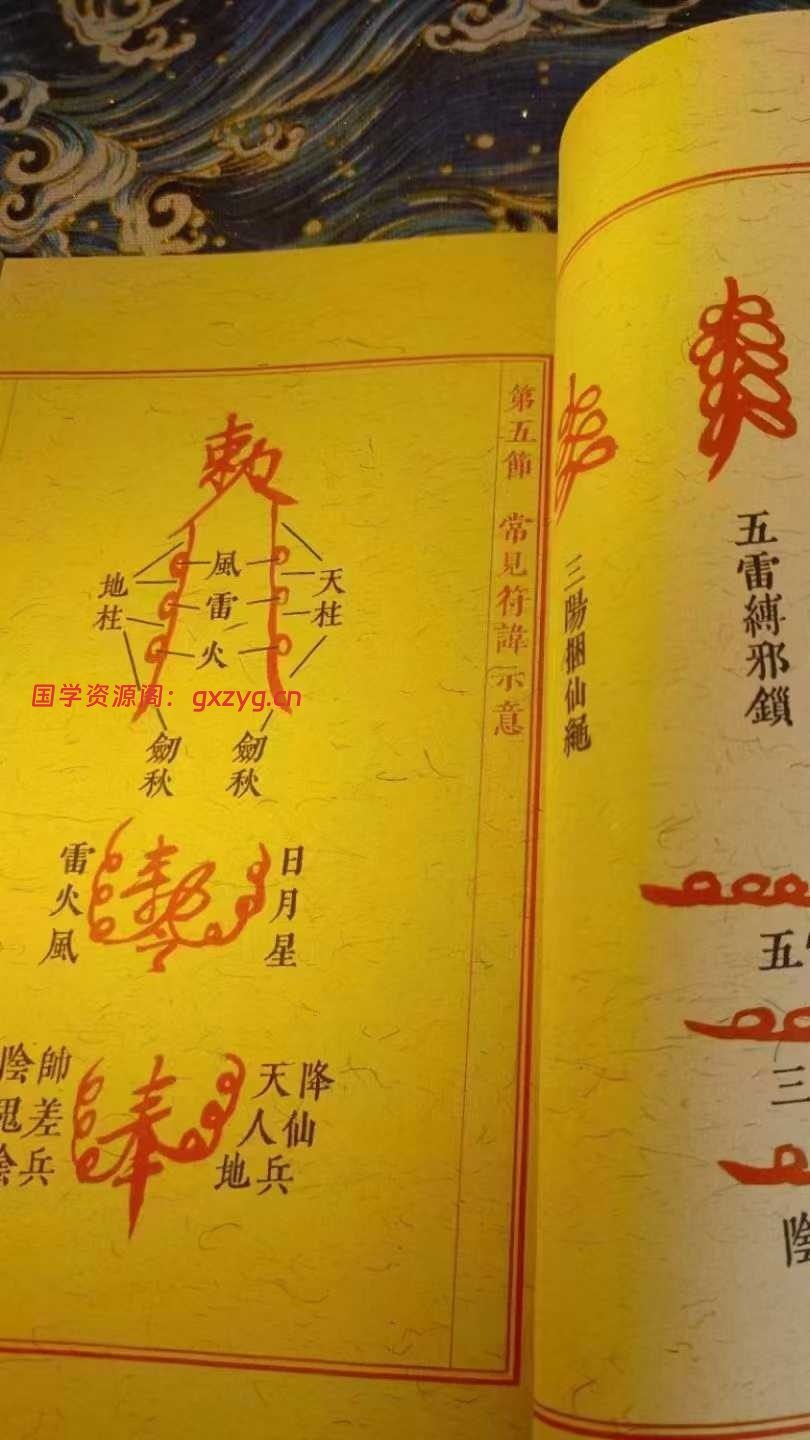 第五節 常見符諱示意
敕
風
雷
火
天柱
地柱
劒秋
劒秋
国学资源阁：gxzyg.cn
日月星
雷火風
奉
降仙兵
天人地
帥差兵
五雷縛邪鎖
三陽捆仙繩
五
三
陰